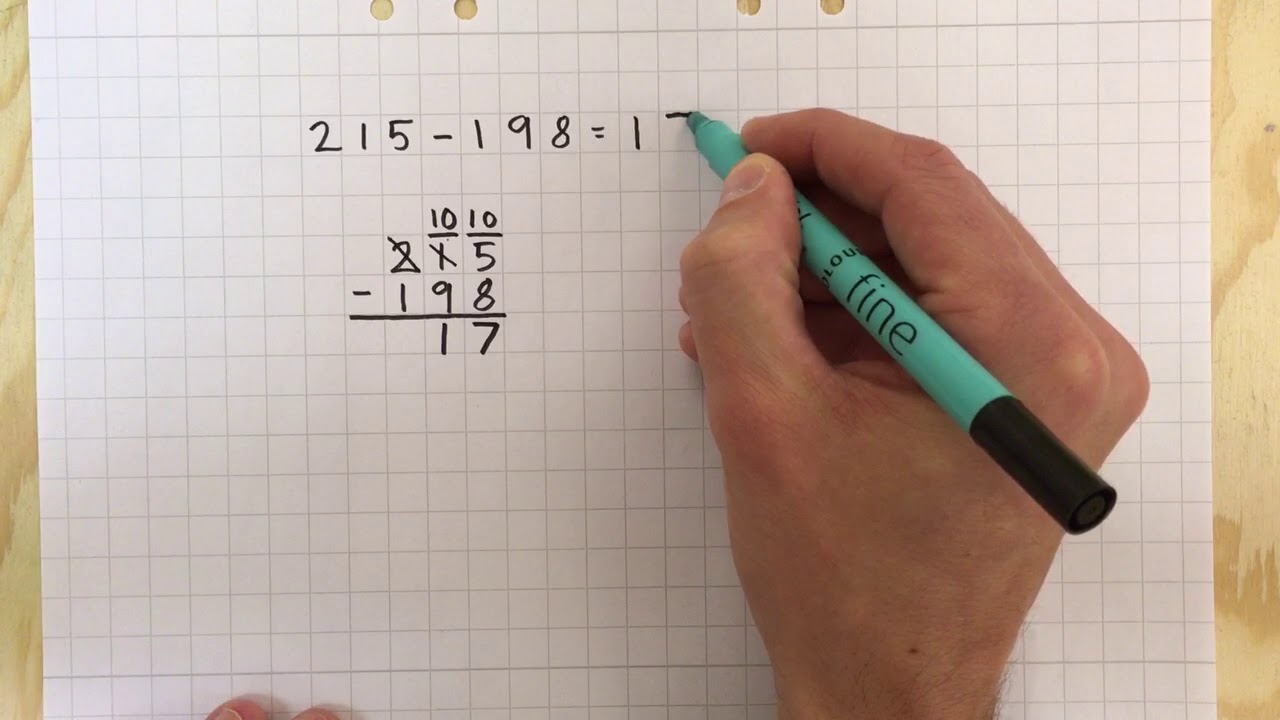 215-198=1
10 10
215
-198
17
fine